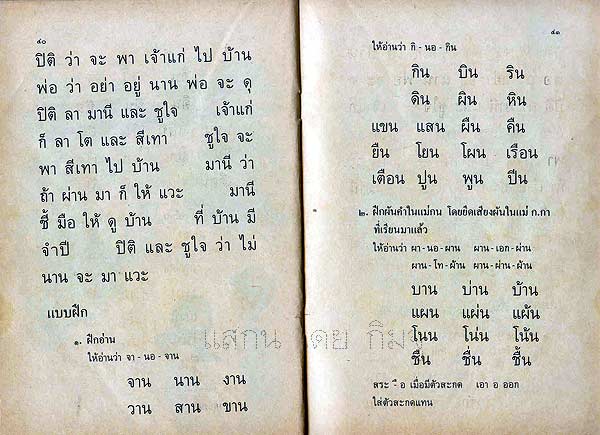 ๔๐
ปิติ ว่า จะ พา เจ้าแก่ ไป บ้าน
พ่อ ว่า อย่า อยู่ นาน พ่อ จะ ดุ
ปิติ ลา มานี และ ชูใจ เจ้าแก่
ก็ ลา โต และ สีเทา ชูใจ จะ
พา สีเทา ไป บ้าน มานี ว่า
ถ้า ผ่าน มา ก็ ให้ แวะ มานี
ชี้ มือ ให้ ดู บ้าน ที่ บ้าน มี
จำปี ปิติ และ ชูใจ ว่า ไม่
นาน จะ มา แวะ
แบบฝึก
๑. ฝึกอ่าน
ให้อ่านว่า จา - นอ - จาน
จาน นาน งาน
วาน สาน ขาน
๔๑
ให้อ่านว่า กิ - นอ - กิน
กิน บิน ริน
ดิน ผิน หิน
แขน แสน ผืน คืน
ยืน โยน โผน เรือน
เตือน ปูน พูน ปืน
๒. ฝึกผันคำในแม่กน โดยยึดเสียงผันในแม่ ก.กา
ที่เรียนมาแล้ว
ให้อ่านว่า ผา - นอ - ผาน ผาน - เอก - ผ่าน
ผาน - โท - ผ้าน ผาน - ผ่าน - ผ้าน
บาน บ่าน บ้าน
แผน แผ่น แผ้น
โนน โน่น โน้น
ชืน ชื่น ชื้น
สระ อือ เมื่อมีตัวสะกด เอา อ ออก
ใส่ตัวสะกดแทน
แสกน โดย กิม